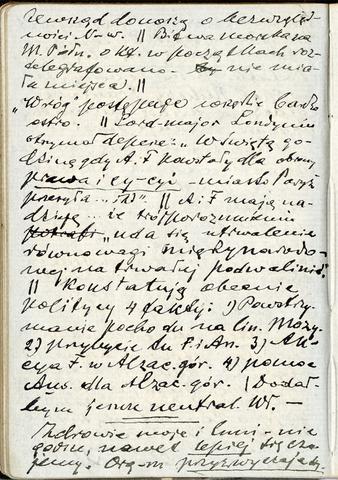 zewsząd donoszą o bezwzględ-
ności N-w. || Bitwa morska na
M. Półn. o kt. w początkach roz-
telegrafowano - nie mia-
ła miejsca. ||
„Wróg” postępuje wszędzie bardzo
ostro. || Lord-major Londynu
otrzymał depeszę: „W świętą go-
dzinę gdy A. i F. powstały dla obrony
prawa i cy-cyi - miasto Paryż
przesyła ... || A. i F. mają na-
dzieję ... że trójporozumieniu
uda się utrwalenie
równowagi międzynarodo-
wej na trwałej podwalinie.
|| Konstatują obecnie
politycy 4 fakty: 1) Powstrzy-
manie pochodu na lin. Mozy.
2) przybycie An. 3) Ak-
cya F. w Alzac. gór. 4) pomoc
Aus. dla Alzac. gór. | Dodał-
bym jeszcze neutral. Wł. -
Zdrowie moje i Emi - nie-
godne, nawet lepiej się czu-
jemy. Org-m przyzwyczaja się.